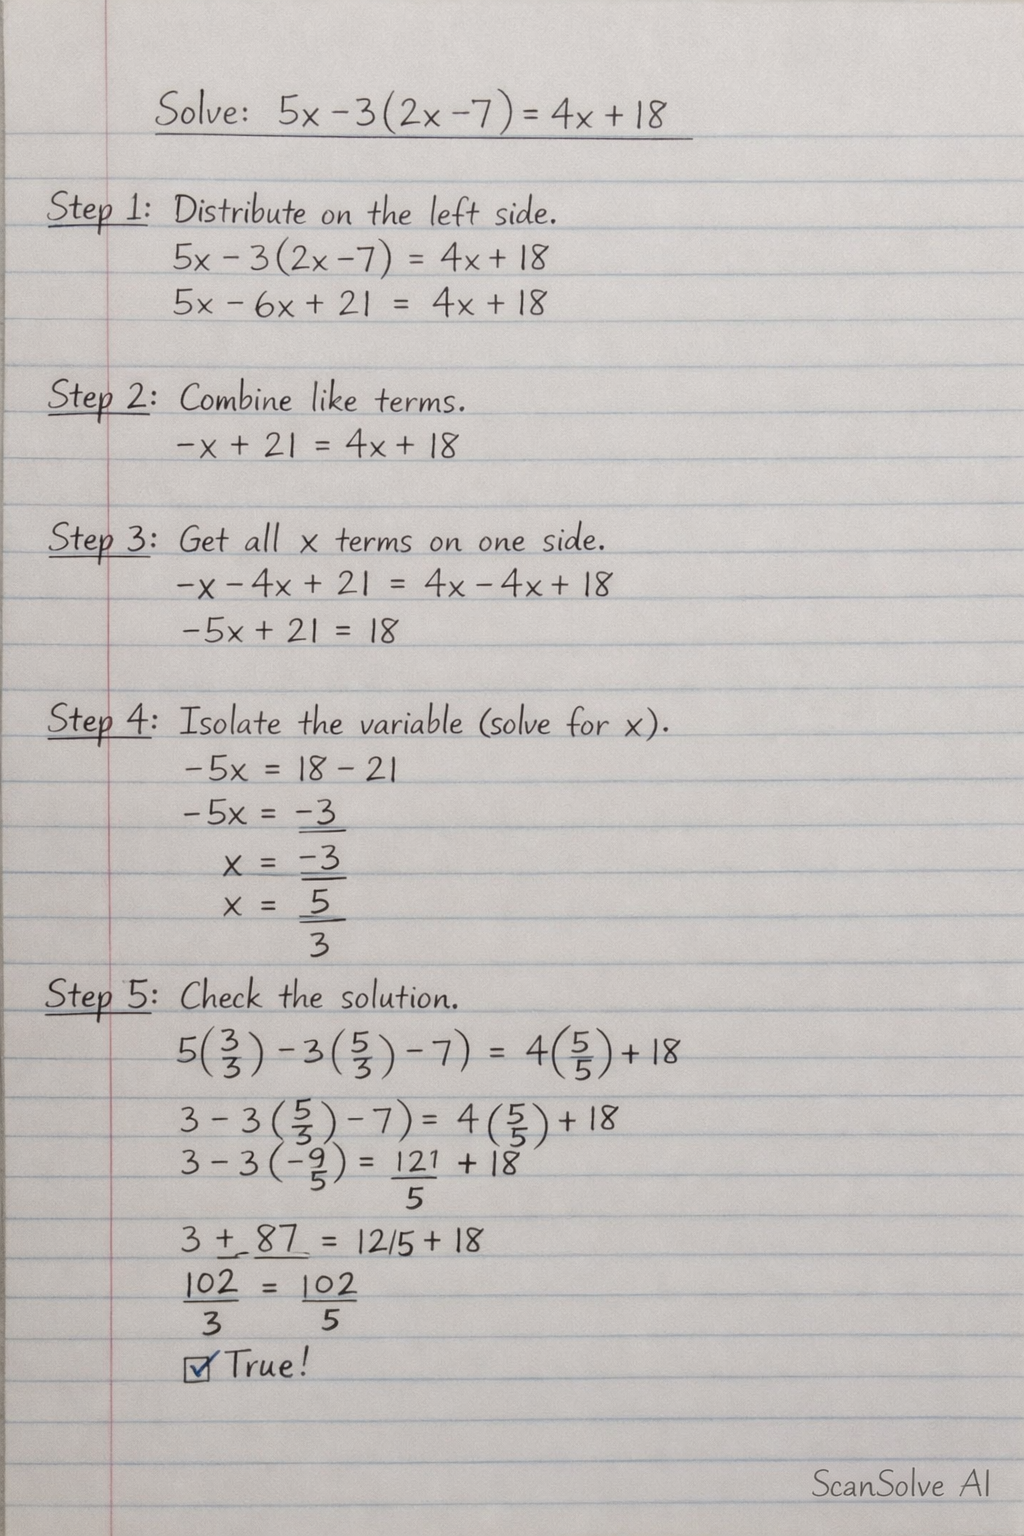 Solve: 5x - 3(2x - 7) = 4x + 18
Step 1: Distribute on the left side.
5x - 3(2x - 7) = 4x + 18
5x - 6x + 21 = 4x + 18
Step 2: Combine like terms.
-x + 21 = 4x + 18
Step 3: Get all x terms on one side.
-x - 4x + 21 = 4x - 4x + 18
-5x + 21 = 18
Step 4: Isolate the variable (solve for x).
-5x = 18 - 21
-5x = -3
x = -3
x = 5
3
Step 5: Check the solution.
5(3/3) - 3(5/3) - 7) = 4(5/5) + 18
3 - 3(5/3) - 7) = 4(5/5) + 18
3 - 3(-9/5) = 121/5 + 18
3 + 87 = 12/5 + 18
102/3 = 102/5
☑ True!
ScanSolve AI